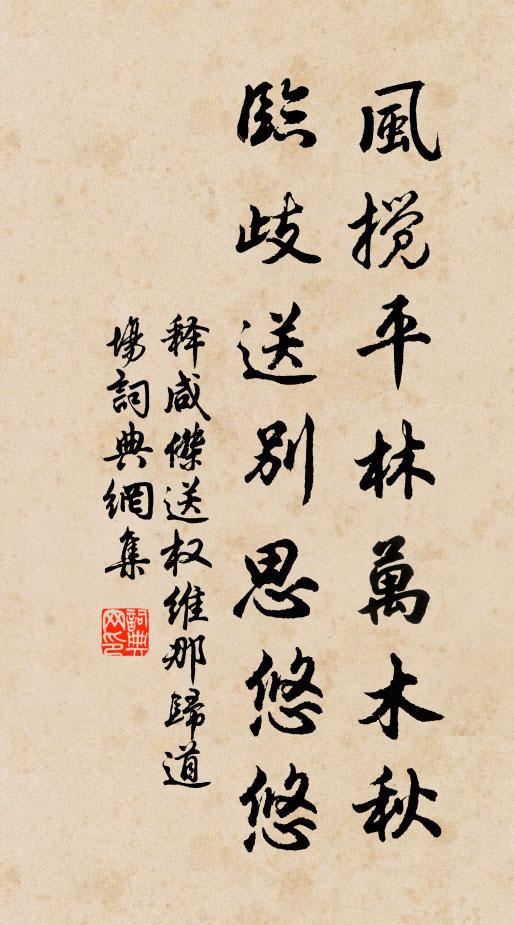 風攪平林萬木秋
臨歧送別思悠悠
释咸傑送权維那歸道
場詞典網集
詞典網印